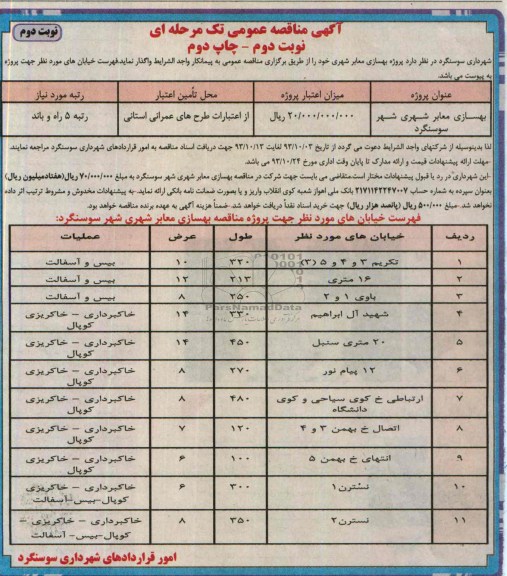 آگهی مناقصه عمومی تک مرحله ای
نوبت دوم
نوبت دوم - چاپ دوم
شهرداری سوسنگرد در نظر دارد پروژه بهسازی معابر شهری خود را از طریق برگزاری مناقصه عمومی به پیمانکار واجد الشرایط واگذار نماید.فهرست خیابان های مورد نظر جهت پروژه
به پیوست می باشد.
عنوان پروژه میزان اعتبار پروژه محل تأمین اعتبار رتبه مورد نیاز
بهسازی معابر شهری شهر سوسنگرد ۲۰/۰۰۰/۰۰۰/۰۰۰ ریال از اعتبارات طرح های عمرانی استانی رتبه ۵ راه و باند
لذا بدینوسیله از شرکتهای واجد الشرایط دعوت می گردد از تاریخ ۹۳/۱۰/۰۳ لغایت ۹۳/۱۰/۱۳ جهت دریافت اسناد مناقصه به امور قراردادهای شهرداری سوسنگرد مراجعه نمایند.
-مهلت ارائه پیشنهادات قیمت و ارائه مدارک تا پایان وقت اداری مورخ ۹۳/۱۰/۲۴ می باشد.
-این شهرداری در رد یا قبول پیشنهادات مختار است.متقاضی می بایست جهت شرکت در مناقصه بهسازی معابر شهری شهر سوسنگرد به مبلغ ۷۰/۰۰۰/۰۰۰ ریال(هفتادمیلیون ریال)
بعنوان سپرده به شماره حساب ۲۱۷۱۱۴۲۲۴۷۰۰۷ بانک ملی اهواز شعبه کوی انقلاب واریز و یا بصورت ضمانت نامه بانکی ارائه نماید.-به پیشنهادات مخدوش و مشروط ترتیب اثر داده
نخواهد شد. مبلغ ۵۰۰/۰۰۰ ریال (پانصد هزار ریال) جهت خرید اسناد نقداً دریافت خواهد شد. ضمناً هزینه آگهی به عهده برنده مناقصه خواهد بود.
فهرست خیابان های مورد نظر جهت پروژه مناقصه بهسازی معابر شهری شهر سوسنگرد:
ردیف خیابان های مورد نظر طول عرض عملیات
۱ تکریم ۳ و ۴ و ۵ (۳) ۳۲۰ ۱۰ بیس و آسفالت
۲ ۱۶ متری ۲۱۳ ۱۲ بیس و آسفالت
۳ باوی ۱ و ۲ ۲۵۰ ۸ بیس و آسفالت
۴ شهید آل ابراهیم ۲۳۰ ۱۴ خاکبرداری - خاکریزی کوپال
۵ ۲۰ متری سنبل ۴۵۰ ۱۴ خاکبرداری - خاکریزی کوپال
۶ ۱۲ پیام نور ۲۷۰ ۸ خاکبرداری - خاکریزی کوپال
۷ ارتباطی خ کوی سیاحی و کوی دانشگاه ۴۸۰ ۸ خاکبرداری - خاکریزی کوپال
۸ اتصال خ بهمن ۳ و ۴ ۱۲۰ ۷ خاکبرداری - خاکریزی کوپال
۹ انتهای خ بهمن ۵ ۱۰۰ ۶ خاکبرداری - خاکریزی کوپال
۱۰ نسترن۱ ۳۰۰ ۶ خاکبرداری - خاکریزی کوپال-بیس-آسفالت
۱۱ نسترن۲ ۳۵۰ ۸ خاکبرداری - خاکریزی - کوپال-بیس- آسفالت
ParsNamadData
امور قراردادهای شهرداری سوسنگرد